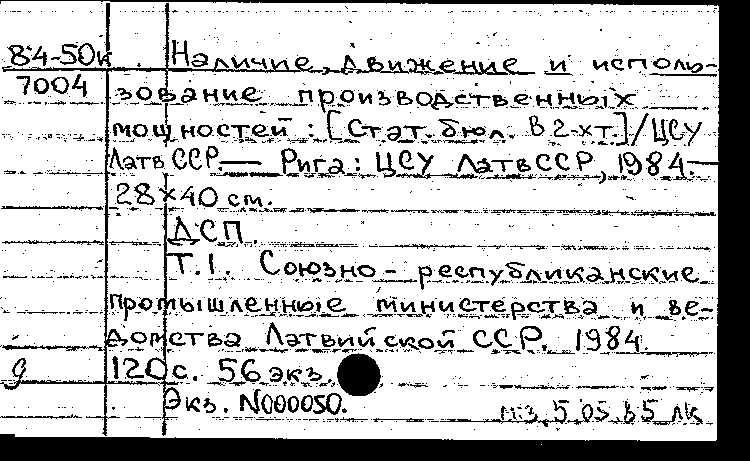 84-50к . Наличие, движение и исполь-
7004 зование производственных
мощностей : [Стат. бюл. В 2-х т.] / ЦСУ
Латв ССР. — Рига : ЦСУ ЛатвССР, 1984. —
28×40 см.
ДСП.
Т.1. Союзно-республиканские
промышленные министерства и ве-
домства Латвийской ССР. 1984.
120с. 56 экз.
Экз. N000050.
5.05.85 лк